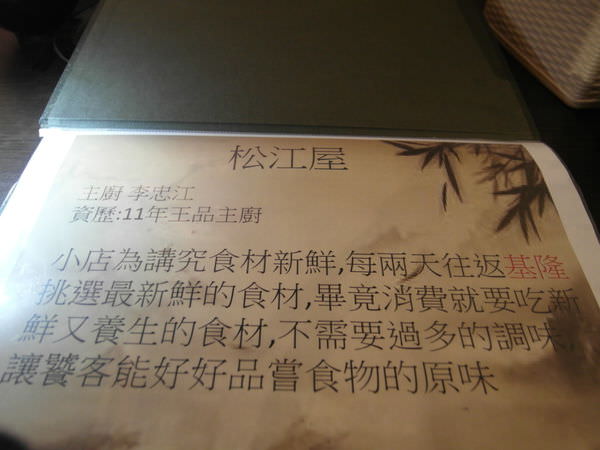 松江屋
主廚 李忠江
資歷:11年王品主廚
小店為講究食材新鮮,每兩天往返基隆
挑選最新鮮的食材,畢竟消費就要吃新
鮮又養生的食材,不需要過多的調味,
讓饕客能好好品嘗食物的原味